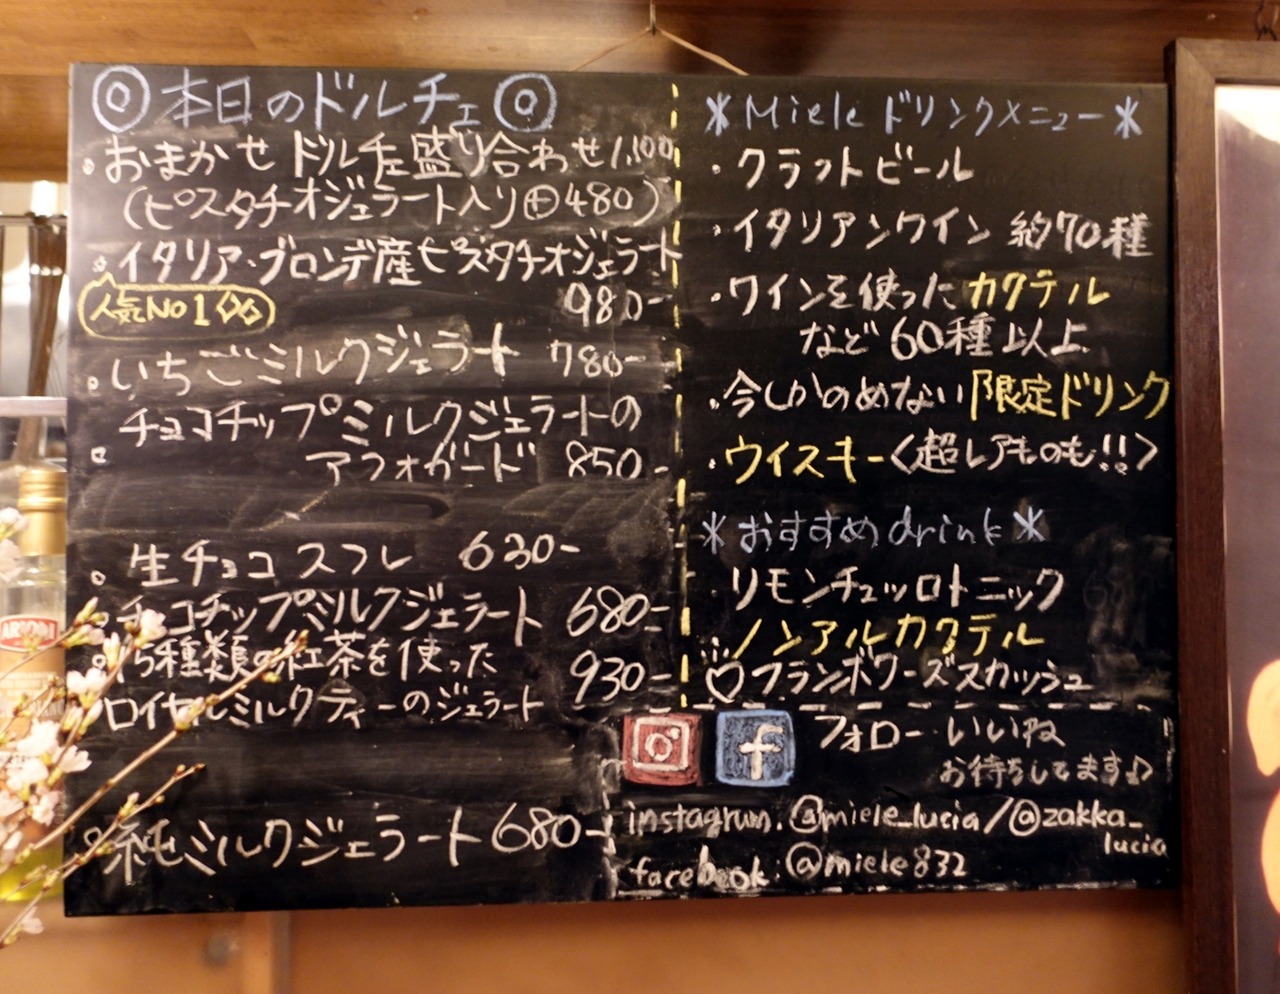 ◎本日のドルチェ◎
・おまかせ ドルチェ盛り合わせ 1,100
(ピスタチオジェラート入り⊕480)
イタリア・ブロンテ産ピスタチオジェラート
人気No1
980-
いちごミルクジェラート 780-
チョコチップミルクジェラートの
アフォガード 850-
生チョコ スフレ 630-
チョコチップミルクジェラート 680-
15種類の紅茶を使った
930-
ロイヤルミルクティーのジェラート
純ミルクジェラート 680-
*Miele ドリンクメニュー*
・クラフトビール
・イタリアンワイン 約70種
・ワインを使ったカクテル
など60種以上
・今しかのめない限定ドリンク
・ウイスキー<超レアものも!!>
*おすすめdrink*
リモンチェッロトニック
ノンアルカクテル
♡フランボワーズスカッシュ
f フォロー・いいね
お待ちしてます♪
instagrum. @miele_lucia/@zakka_
lucia
facebook: @miele832
ARIONI